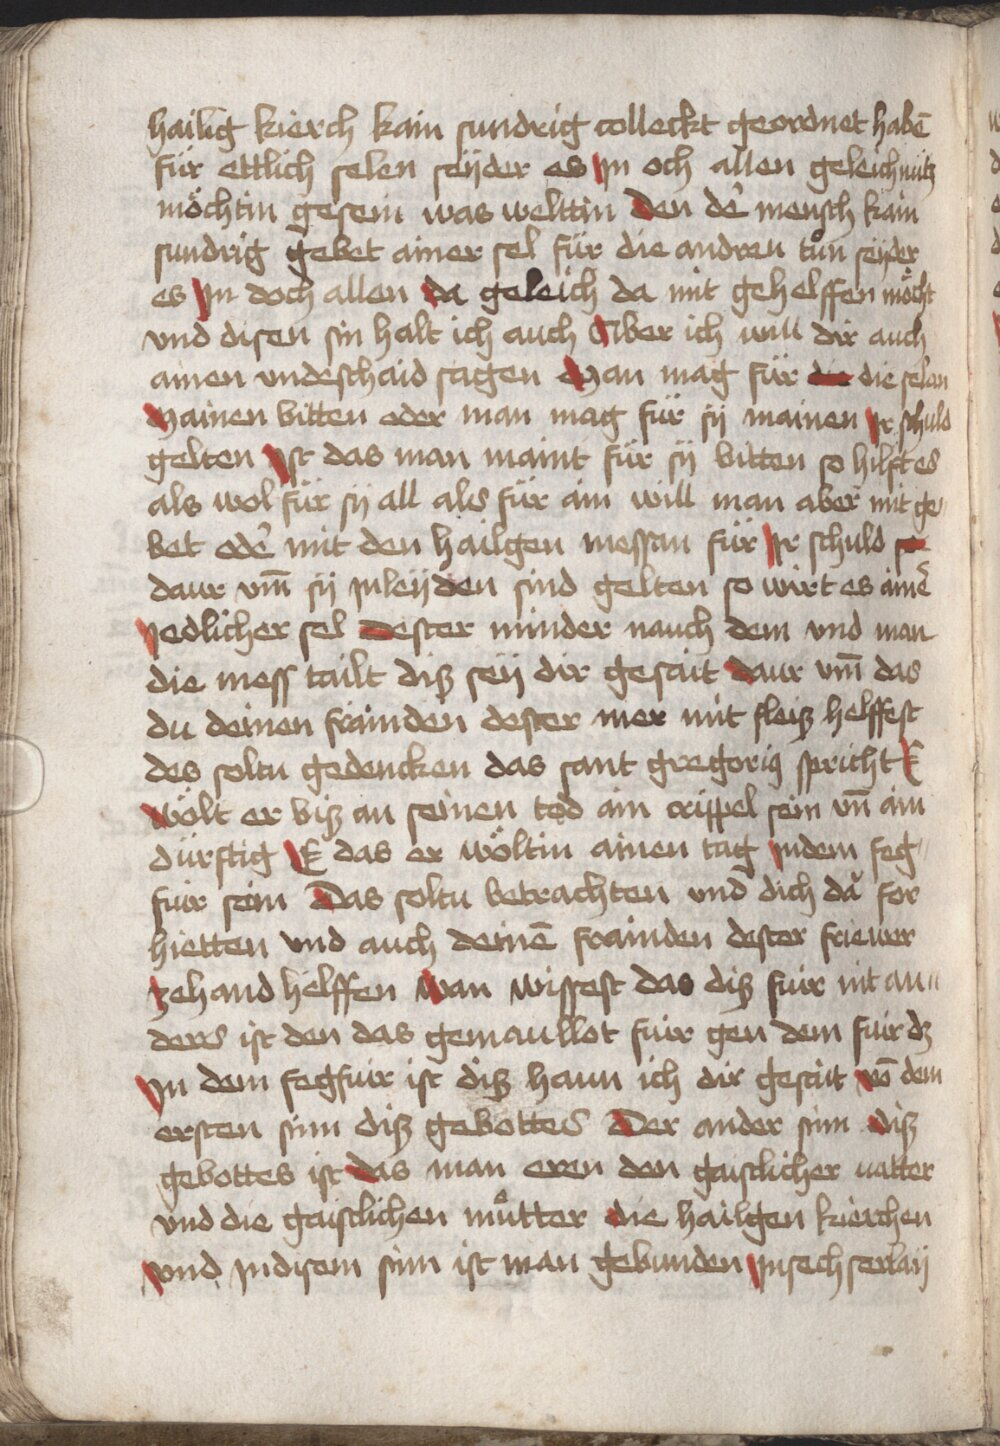 hailig kierch kain sundrig colleckt geordnet habē
für ettlich selen seyder es Jn och allen geleich nütz
möchtin gesein was welttin den dē mensch kain
sundrig gebet ainer sel für die andren tůn seyder
es Jn doch allen da geleich da mit gehelffen möcht
vnd disen sin halt ich auch Aber ich will dir auch
ainen vndeschaid sagen Man mag für die selan
Mainen bitten oder man mag für sy mainen Jr schuld
gelten Jst das man maint für sy bitten so hilft es
als wol für sy all als für ain will man aber mit ge
bet odē mit den hailgen messan für Jr schuld
daur vm̄ sy Jnleyden sind gelten so wirt es ainē
Jedlicher sel dester minder nauch dem vnd man
die mess tailt diß sey dir gesait daur vm̄ das
du deinen frainden dester mer mit fleiß helffest
des soltu gedencken das sant gregoriꝰ spricht E
wölt er biß an seinen tod ain crippel sein vn̄ ain
dürftig E das er wöltin ainen tag Jndem feg
fuir sein Das soltu betrachten vnd dich da for
hietten vnd auch deinē frainden dester friewer
zehand helffen wan wissest das diß fuir nit an
ders ist den das gemaullot fuir gen dem fuir dz
Jn dem fegfuir ist diß haun ich dir gesait vō dem
ersten sinn diß gebottes Der ander sinn diß
gebottes ist das man eren den gaistlicher vatter
vnd die gaistlichen můtter die hailgen kierchen
vnd Jndisem sinn ist man gebunden Jnsechserlay